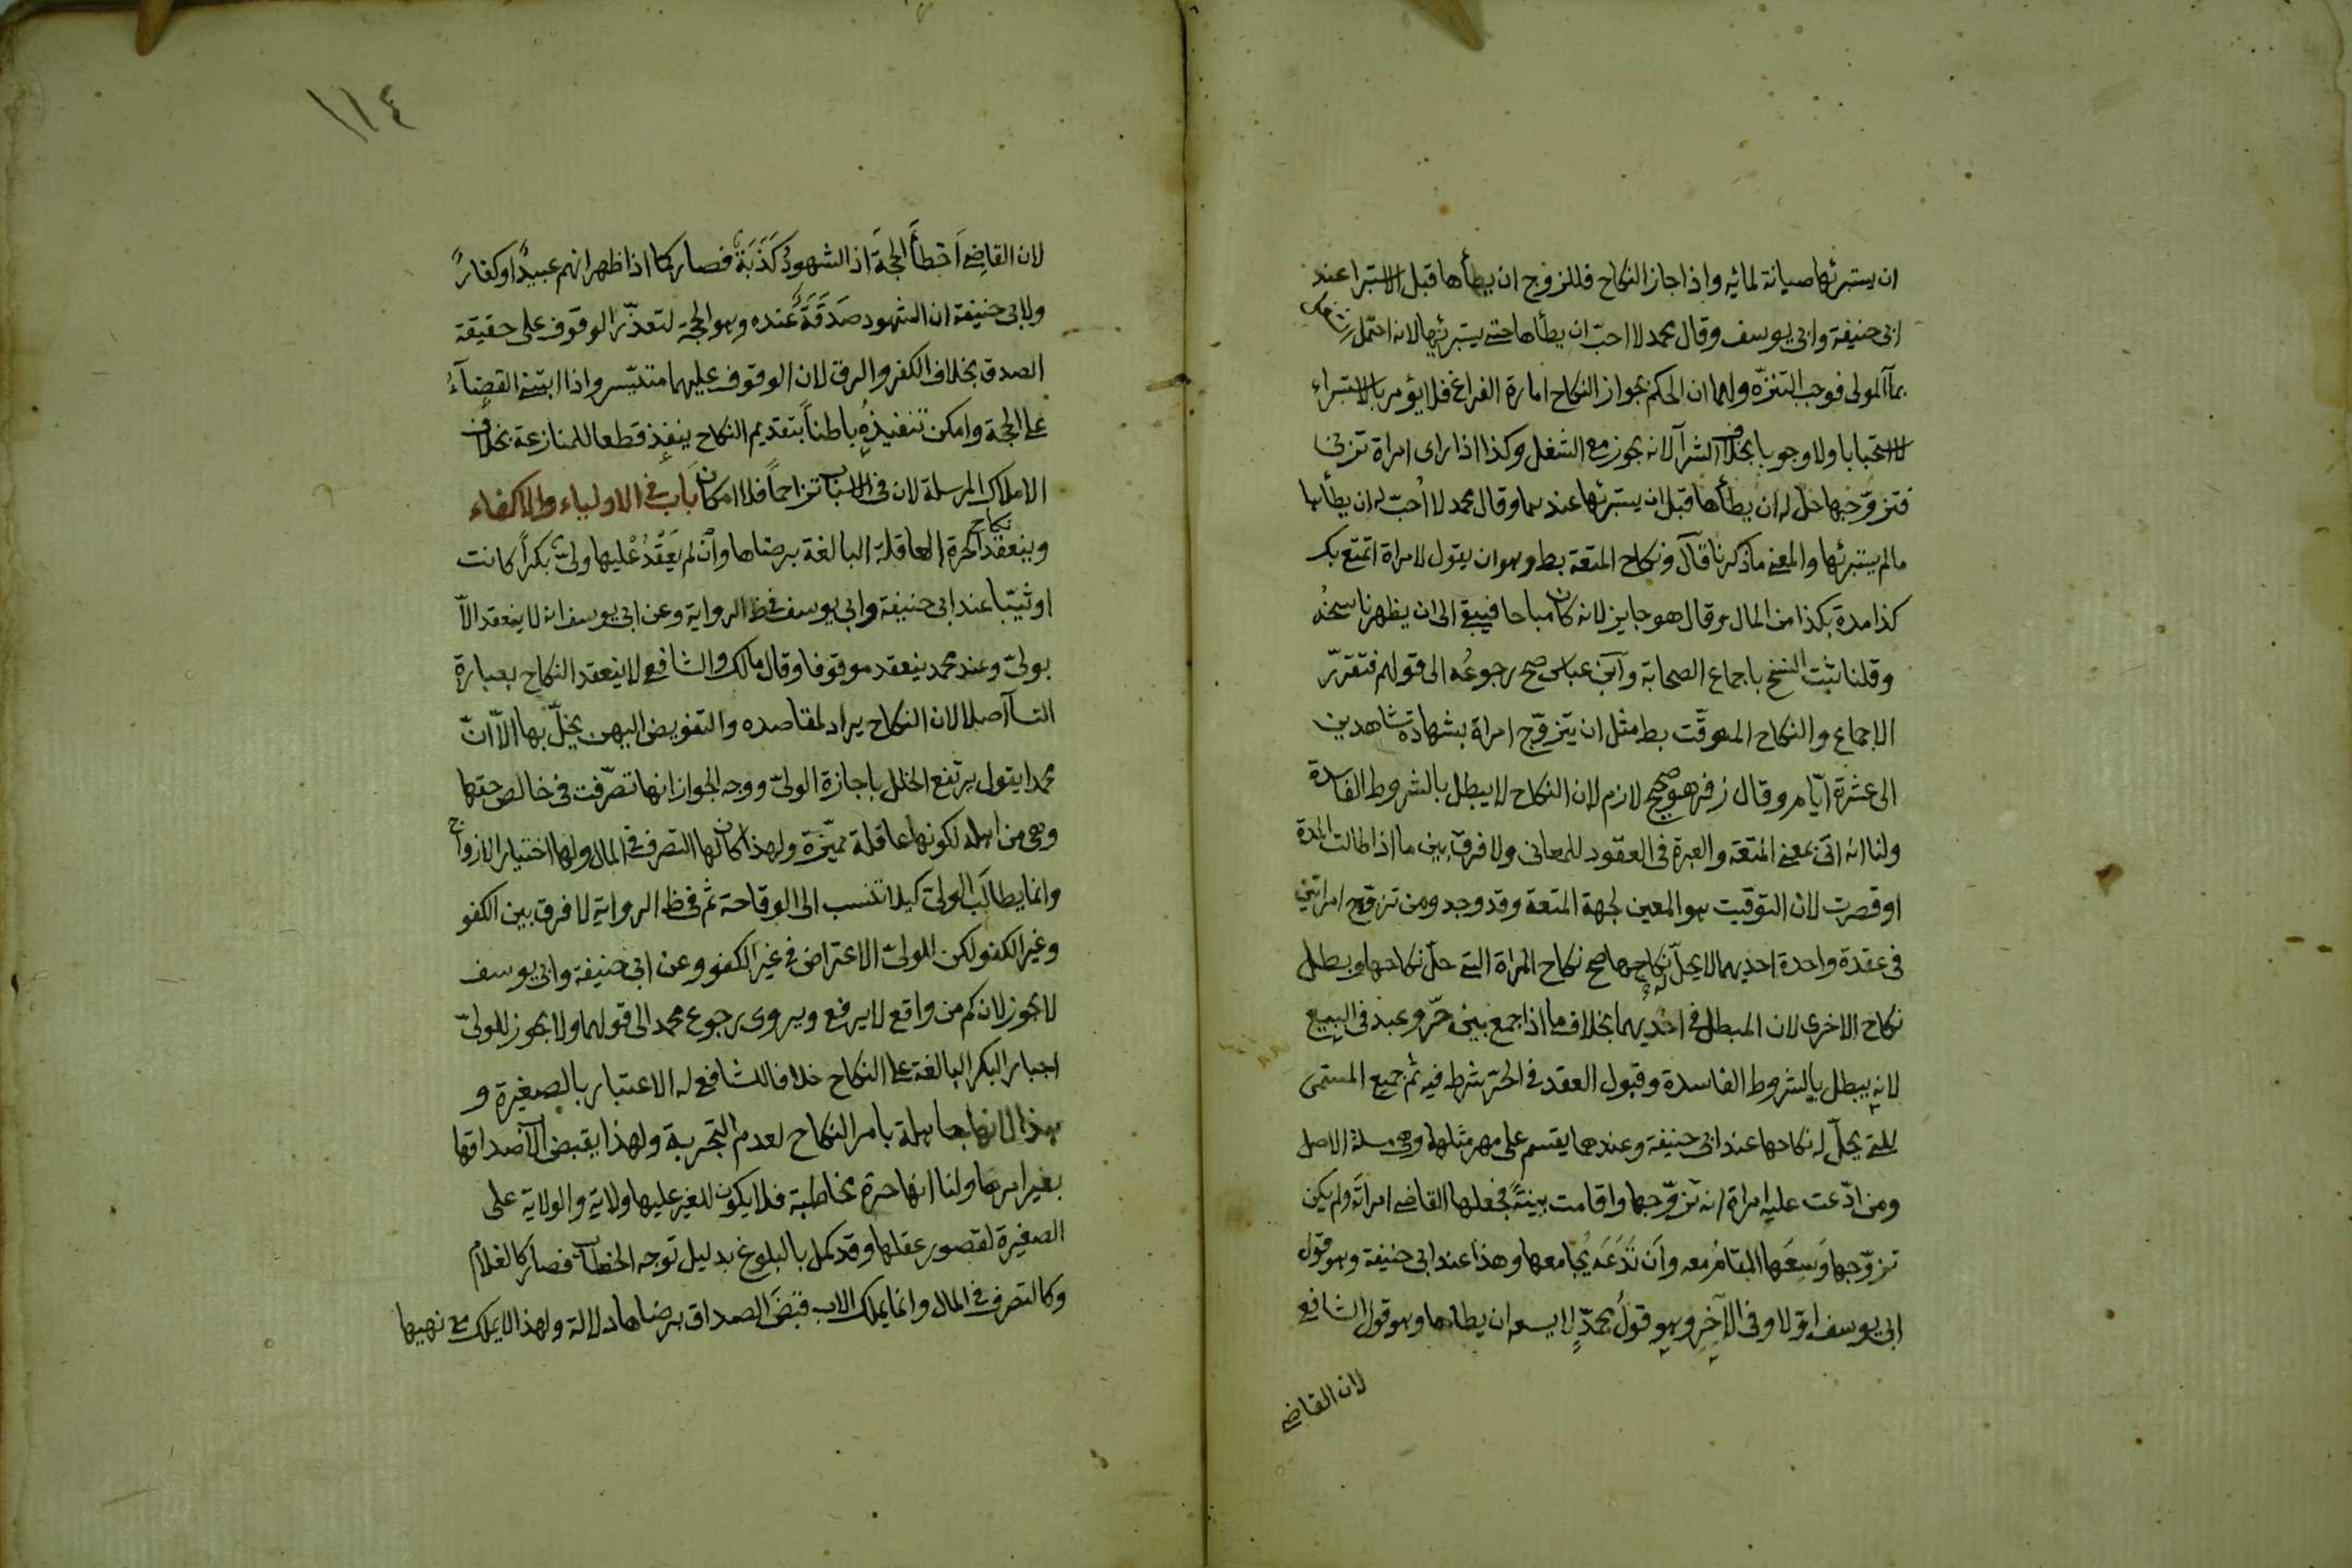 ان يستبرئها صيانة لمائه واذا جاز النكاح فللزوج ان يطأها قبل الاستبرا عند
ابى حنيفة وابى يوسف وقال محمد لا احبّ ان يطأها حتى يستبرئها لانه احتمل الشغل
بمآ المولى فوجب التنزّه ولهما ان الحكم بجواز النكاح امارة الفراغ فلا يؤمر بالاستبراء
لا استحبابا ولا وجوبا بخلاف الشرآ لانه يجوز مع الشغل وكذا اذا راى امراة تزنى
فتزوّجها حل له ان يطأها قبل ان يستبرئها عندهما وقال محمد لا اُحبّ له ان يطأها
ما لم يستبرئها والمعنى ما ذكرنا قال ونكاح المتعة بط وهو ان يقول لامراة اتمتع بك
كذا مدة بكذا من المال وقال هو جايز لانه كان مباحا فيبقى الى ان يظهر ناسخُه
وقلنا ثبت النسخ باجماع الصحابة وابن عباس صح رجوعُه الى قولهم فتقرّر
الاجماع والنكاح الموقّت بط مثل ان يتزوّج امراة بشهادة شاهدين
الى عشرة ايّام وقال زفر هو صحيح لازم لان النكاح لا يبطل بالشروط الفاسدة
ولنا انه اتى بمعنى المتعة والعبرة فى العقود للمعانى ولا فرق بين ما اذا طالت المدة
او قصرت لان التوقيت هو المعين لجهة المتعة وقد وجد ومن تزوّج امراتين
فى عقدة واحدة احديهما لا يحلّ له نكاحها صح نكاح المراة التى حلّ نكاحها وبطل
نكاح الاخرى لان المبطل فى احديهما بخلاف ما اذا جمع بين حرّ وعبد فى البيع
لانه يبطل بالشروط الفاسدة وقبول العقد فى الحرّ شرط فيه ثم جميع المسمى
للتى يحلّ له نكاحها عند ابى حنيفة وعندهما يقسم على مهر مثلهما وهى مسئلة الاصل
ومن ادّعت عليه امراة انه تزوّجها واقامت بينةً فجعلها القاضى امراتَه ولم يكن
تزوّجها وَسِعَها المقامُ معه واَن تَدَعَه يُجامعها وهذا عند ابى حنيفة وهو قول
ابى يوسف اوّلا وفى الآخِرِ وهو قولُ محمدٍّ لا يسعه ان يطاها وهو قول الشافعى
لان القاضى
١١٤
لان القاضِى اَخطأَ الحجةَ اذ الشهودُ كَذَبَةٌ فصار كما اذا ظهر انهم عبيدٌ او كفارٌ
ولابى حنيفة ان الشهود صَدَقَةٌ عنده وهو الحجة لتعذّر الوقوف على حقيقة
الصدق بخلاف الكفر والرق لان الوقوف عليهما متيسّر واذا ابتنى القضآءُ
على الحجة وامكن تنفيذُه باطناً بتقديم النكاح ينفذ قطعا للمنازعة بخلاف
الاملاك المرسلة لان فى الاسباب تزاحماً فلا امكان بَاب فى الاولياء والاكفاء
وينعقد نكاح الحرة العاقلة البالغة برضاها وانْ لم يَعْقدْ عليها ولىّ بكراً كانت
او ثيّبا عند ابى حنيفة وابى يوسف فى ظ الرواية وعن ابى يوسف انه لا ينعقد الاّ
بولىّ وعند محمد ينعقد موقوفا وقال مالك والشافعى لا ينعقد النكاح بعبارة
النسآ اصلا لان النكاح يراد لمقاصده والتفويض اليهن يخلّ بها الاّ انّ
محمدا يقول يرتفع الخلل باجازة الولىّ ووجه الجواز انها تصرّفت فى خالص حقها
وهى من اهله لكونها عاقلة مميّزة ولهذا كان لها التصرف فى المال ولها اختيار الازواج
وانما يطالَب الولىّ كيلا تنسب الى الوقاحة ثم فى ظ الرواية لا فرق بين الكفو
وغير الكفو لكن للولىّ الاعتراض فى غير الكفو وعن ابى حنيفة وابى يوسف
لا يجوز لان كم من واقع لا يرفع ويروى رجوع محمد الى قولهما ولا يجوز للولىّ
اجبار البكر البالغة على النكاح خلافا للشافعى له الاعتبار بالصغيرة و
هذا لانها جاهلة بامر النكاح لعدم التجربة ولهذا يقبض الاب صداقها
بغير امرها ولنا انها حرة مخاطبة فلا يكون للغير عليها ولاية والولاية على
الصغيرة لقصور عقلها وقد كمل بالبلوغ بدليل توجه الخطاب فصار كالغلام
وكالتصرف فى المال وانما يملك الاب قبضَ الصداق برضاها دلالة ولهذا لا يملك مع نهيها